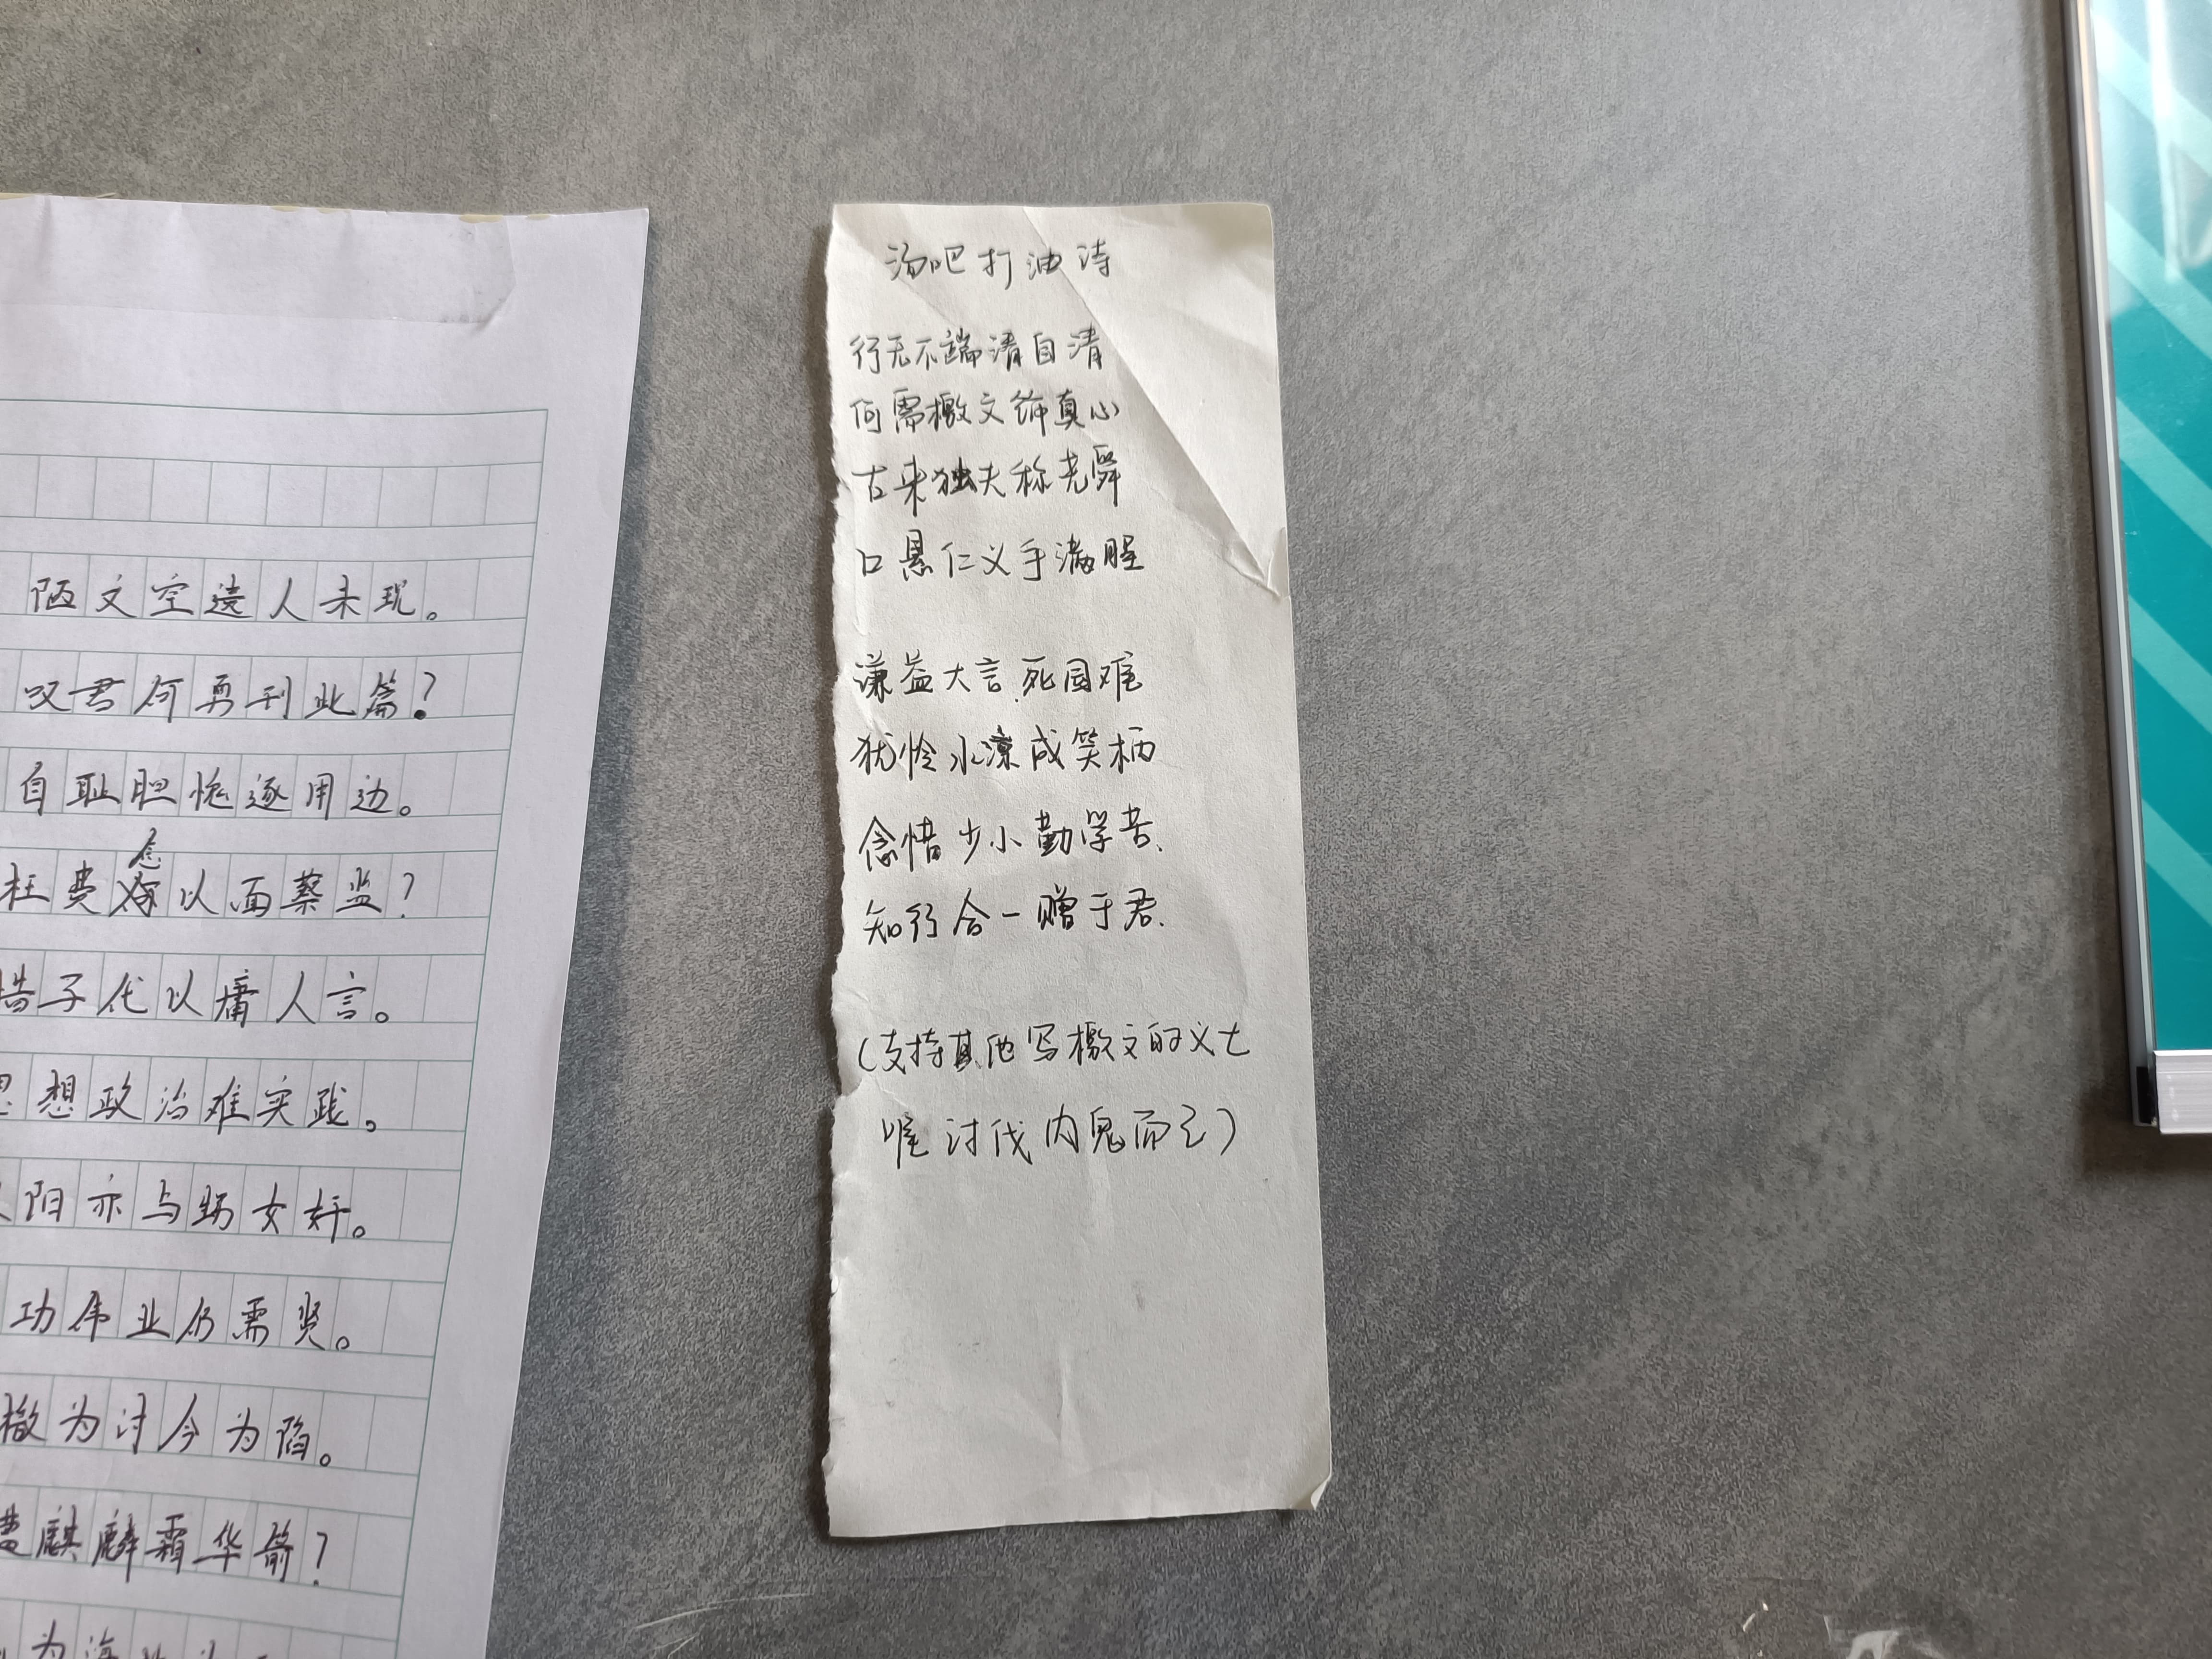 陋文空遗人未现。
叹君何再刊此篇?
自耻胆愧逐用边。
枉费怠以面蔡监?
子代以庸人言。
思想政治难实践。
阳亦与 女奸。
功伟业仍需贤。
檄为讨今为陷。
麒麟霜华箭?
为海
汤吧打油诗
行无不端清自清
何需檄文饰真心
古来独夫称尧舜
口悬仁义手满腥
谦益大言死国难
犹怜水凉成笑柄
念惜少小勤学苦.
知行合一赠于君.
(支持其他写檄文的义士
唯讨伐内鬼而已)